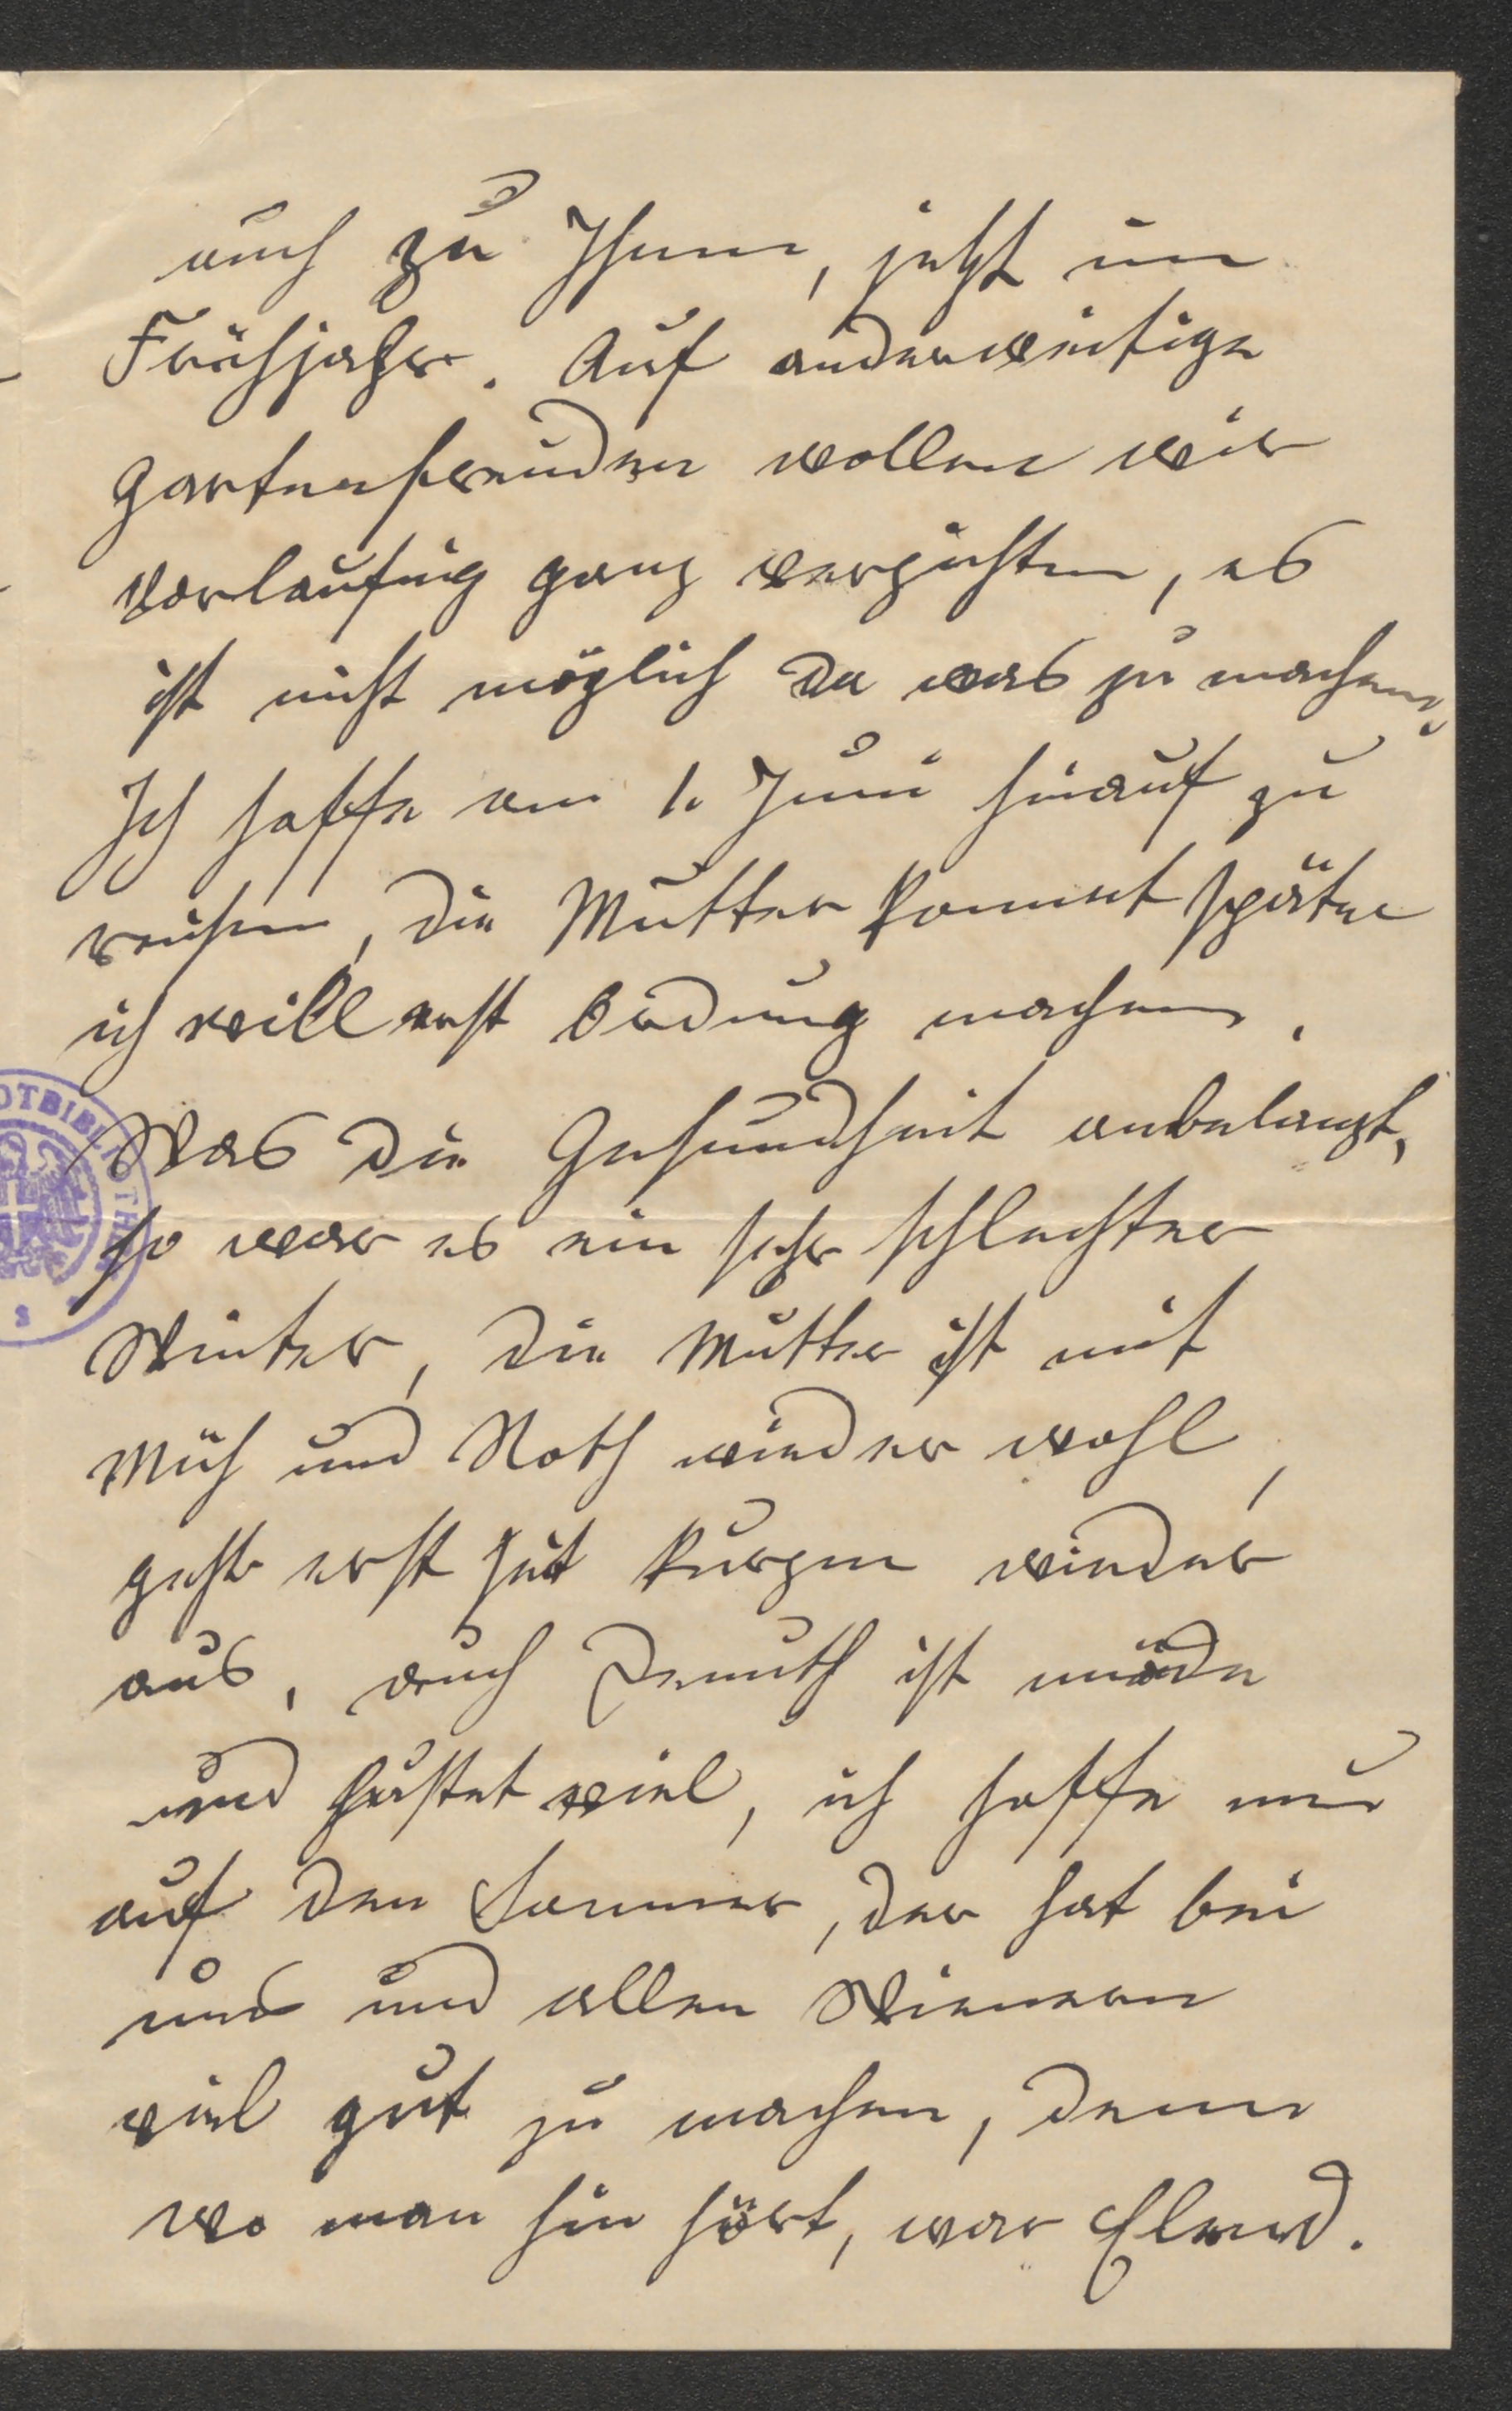 auch zu Ihnen, jetzt im
Frühjahr. Auf anderweitige
Gartenfreuden wollen wir
vorläufig ganz verzichten, es
ist nicht möglich da was zu machen.
Ich hoffe am 1. Juni hinauf zu
reisen, die Mutter kommt später
ich will erst Ordnung machen.
Was die Gesundheit anbelangt,
so war es ein sehr schlechter
Winter, die Mutter ist mit
Müh und Noth wieder wohl,
geht erst seit kurzem wieder
aus, auch Demuth ist müde
und hustet viel, ich hoffe nur
auf den Sommer, der hat bei
uns und allen Wienern
viel gut zu machen, denn
wo man hin hört, war Elend.